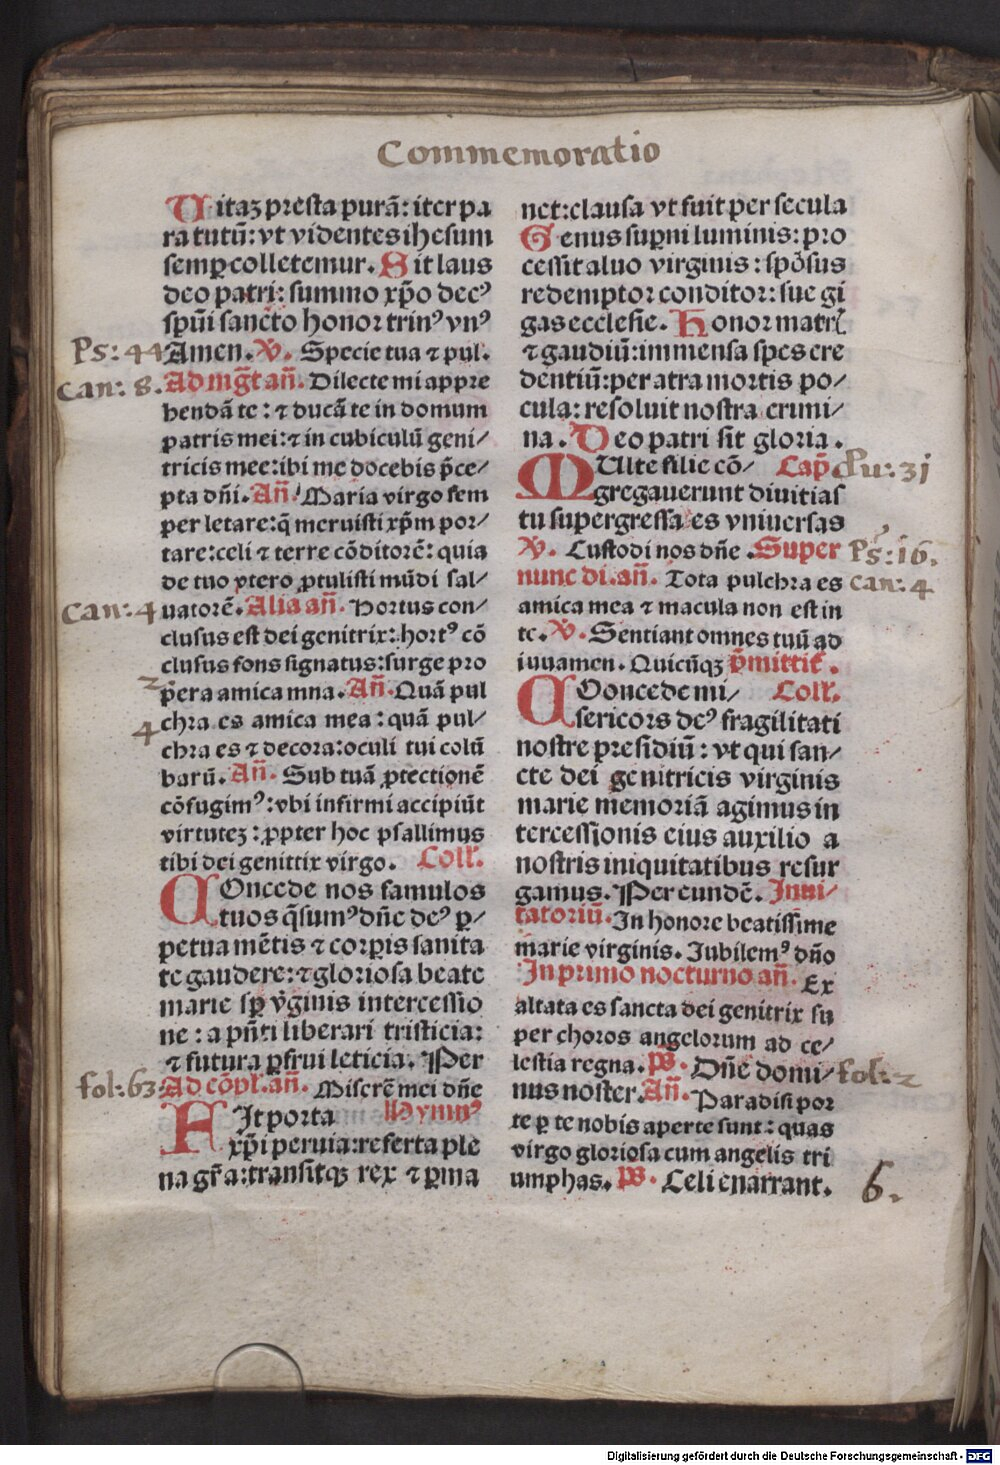 Commemoratio
Vitaꝫ presta purã: iter pa
ra tutũ: vt videntes ihesum
semꝑ colletemur. Sit laus
deo patri: summo xp̃o decꝰ
spũi sancto honor trinꝰ vnꝰ
Ps: 44 Amen. V̾. Specie tua ⁊ pul.
can: 8. Ad mg̃t añ. Dilecte mi appre
hendã te: ⁊ ducã te in domum
patris mei: ⁊ in cubiculũ geni/
tricis mee: ibi me docebis p̃ce/
pta dñi. Añ. Maria virgo sem
per letare: q̃ meruisti xp̃m por/
tare: celi ⁊ terre cõditorẽ: quia
de tuo vtero ꝓtulisti mũdi sal/
can: 4 uatorẽ. Alia añ. Hortus con/
clusus est dei genitrix: hortꝰ cõ
clusus fons signatus: surge pro
2 p̃era amica mna. Añ. Quã pul
4 chra es amica mea: quã pul/
chra es ⁊ decora: oculi tui colũ
barũ. Añ. Sub tuã ꝓtectionẽ
cõfugimꝰ: vbi infirmi accipiũt
virtuteꝫ: ꝓpter hoc psallimus
tibi dei genittix virgo. Coll'.
COncede nos famulos
tuos q̃sumꝰ dñe deꝰ ꝑ/
petua mẽtis ⁊ corꝑis sanita
te gaudere: ⁊ gloriosa beate
marie sꝑ v̾ginis intercessio
ne: a pñti liberari tristicia:
⁊ futura ꝑfrui leticia. Per
fol: 63 Ad cõpl'. añ. Miserẽ mei dñe
FIt porta Hymnꝰ
xp̃i peruia: referta ple
na gr̃a: transitqꝫ rex ⁊ ꝑma
net: clausa vt fuit per secula
Genus suꝑni luminis: pro
cessit aluo virginis: spõsus
redemptor conditor: sue gi
gas ecclesie. Honor matrꝭ
⁊ gaudiũ: immensa spes cre
dentiũ: per atra mortis po/
cula: resoluit nostra crimi/
na. Deo patri sit gloria.
MUlte filie cõ/ Cap̃ Pu: 31
gregauerunt diuitias
tu supergressa es vniuersas
V̾. Custodi nos dñe. Super Ps: 16.
nunc di. añ. Tota pulchra es can: 4
amica mea ⁊ macula non est in
te. V̾. Sentiant omnes tuũ ad
iuuamen. Quicũqꝫ p̃mittit̃.
COoncede mi/ Coll'.
sericors deꝰ fragilitati
nostre presidiũ: vt qui san/
cte dei genitricis virginis
marie memoriã agimus in
tercessionis eius auxilio a
nostris iniquitatibus resur
gamus. Per eundẽ. Inui/
tatoriũ. In honore beatissime
marie virginis. Iubilemꝰ dño
In primo nocturno añ. Ex
altata es sancta dei genitrix su
per choros angelorum ad ce/
lestia regna. ps̃. Dñe domi/ fol: 2
nus noster. Añ. Paradisi por
te ꝑ te nobis aperte sunt: quas
virgo gloriosa cum angelis tri
umphas. ps̃. Celi enarrant. 6.
Digitalisierung gefördert durch die Deutsche Forschungsgemeinschaft - DFG